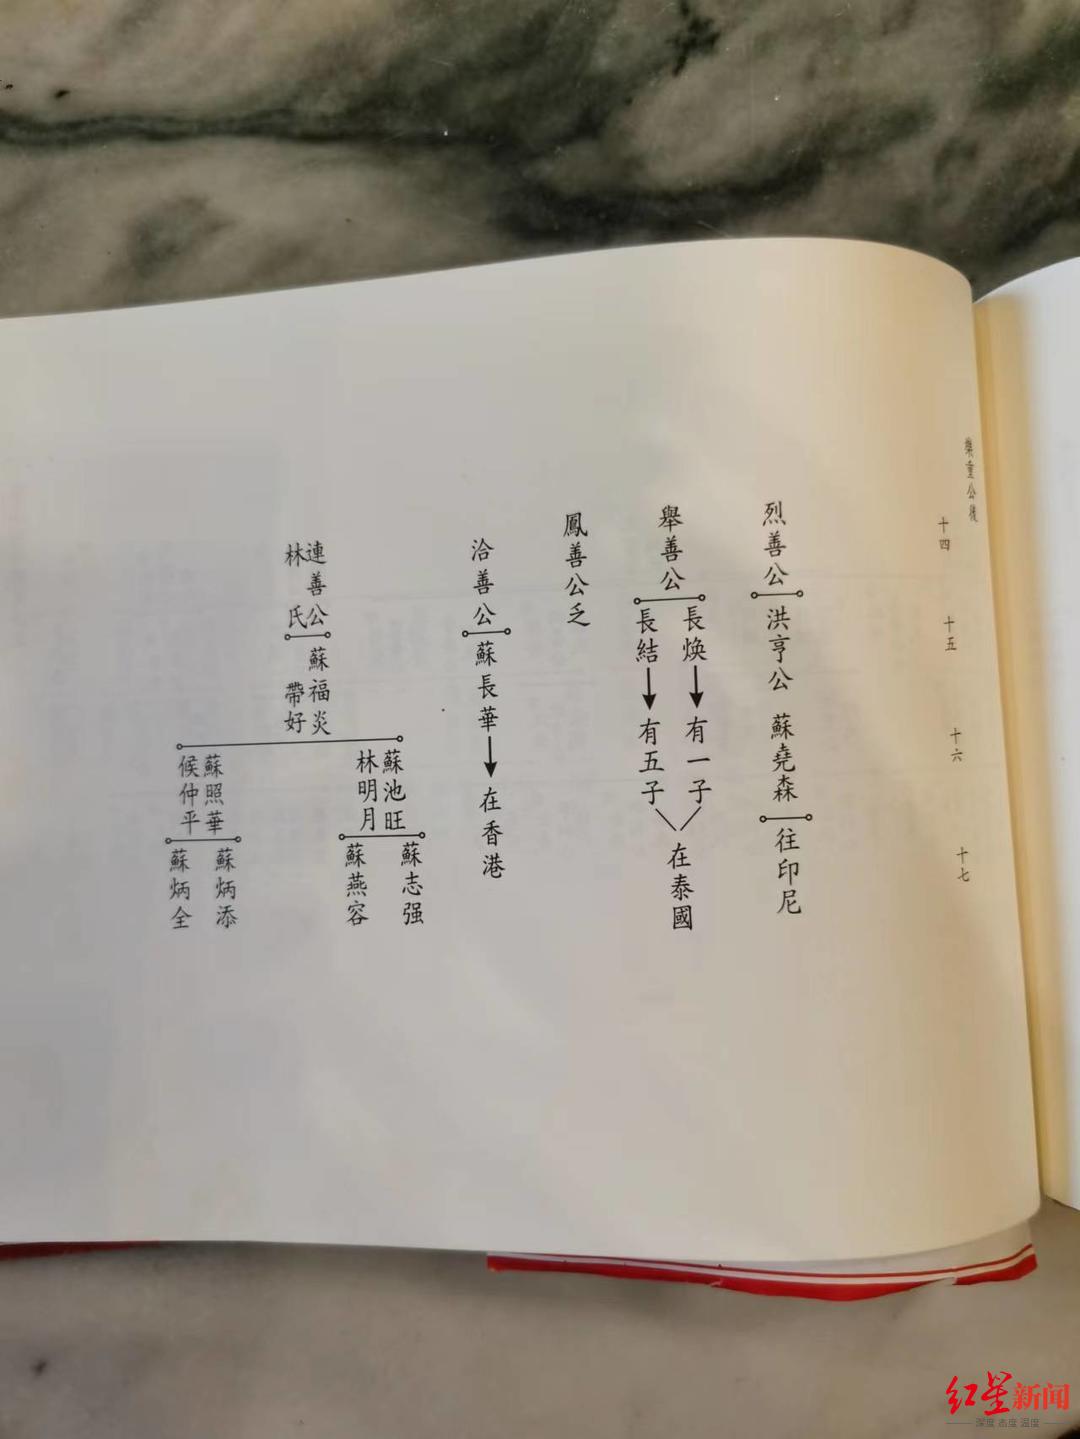 樂重公後
十四
十五
十六
十七
烈善公
洪亨公
蘇堯森
往印尼
舉善公
長煥
有一子
長結
有五子
在泰國
鳳善公乏
洽善公
蘇長華
在香港
連善公
林氏
蘇福炎
帶好
蘇池旺
林明月
蘇志强
蘇燕容
蘇照華
候仲平
蘇炳添
蘇炳全
红星新闻
深度 态度 温度